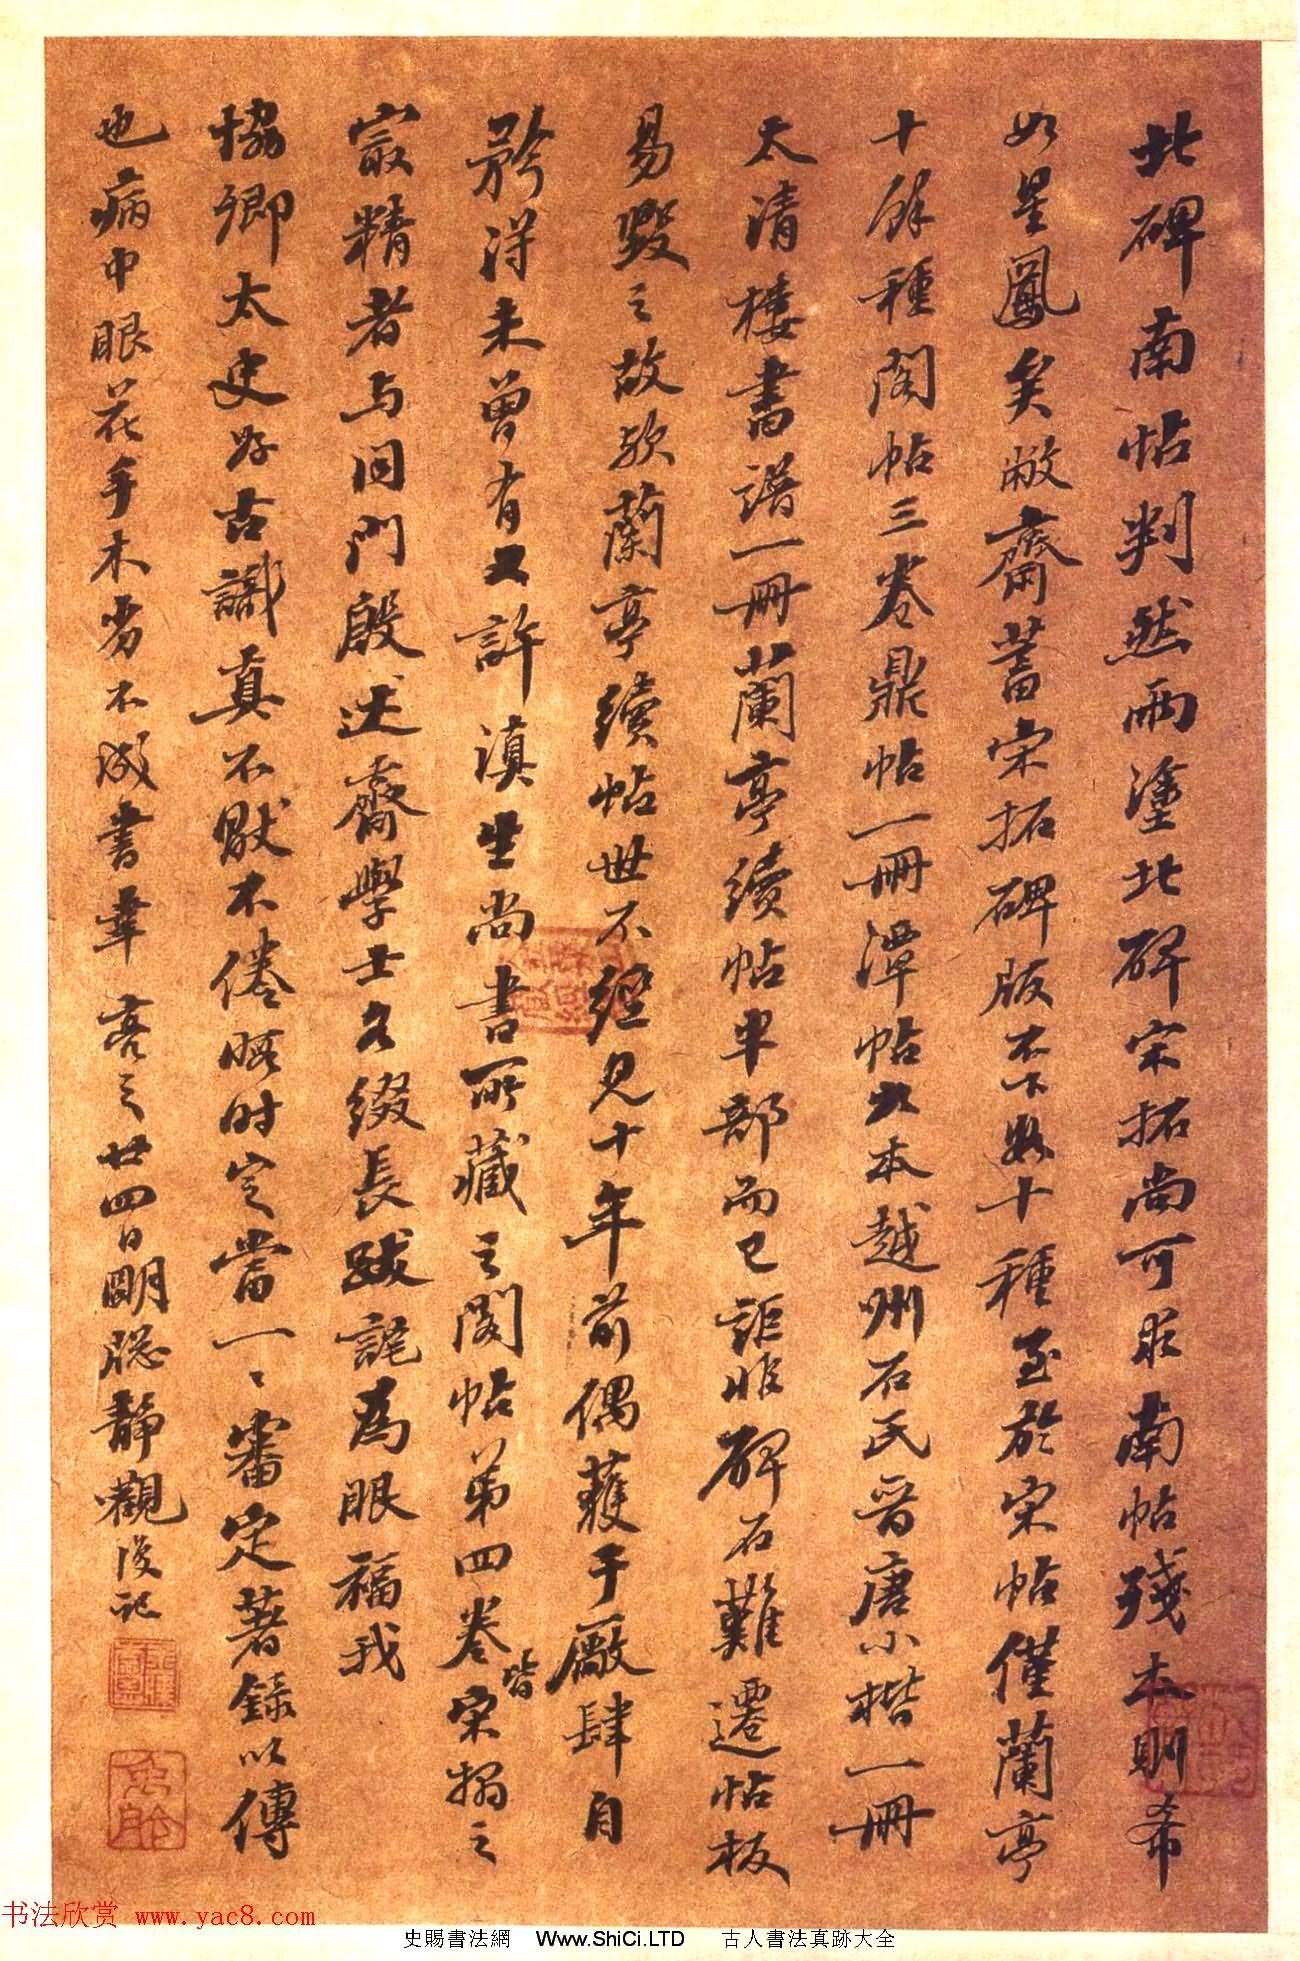 北碑南帖判然兩塗北碑宋拓尚可求南帖殘本則希
如星鳳矣敝齋蓄宋拓碑版不下數十種至於宋帖僅蘭亭
十餘種閣帖三卷鼎帖一冊潭帖大本越州石氏晉唐小楷一冊
太清樓書譜一冊蘭亭續帖半部而已詎惟碑石難遷帖板
易毀之故歟蘭亭續帖世不經見十年前偶獲于廠肆自
矜得未曾有又許滇生尚書所藏之閣帖第四卷皆宋搨之
最精者与同門殷述齋學士各綴長跋詫為眼福我
協卿太史好古識真不厭不倦暇時定當一一審定著錄以傳
也病中眼花手木劣不成書華 喜之廿四日朙聰靜觀後記
书法欣赏 www.yac8.com
史賜書法網 Www.ShiCi.LTD 古人書法真跡大全